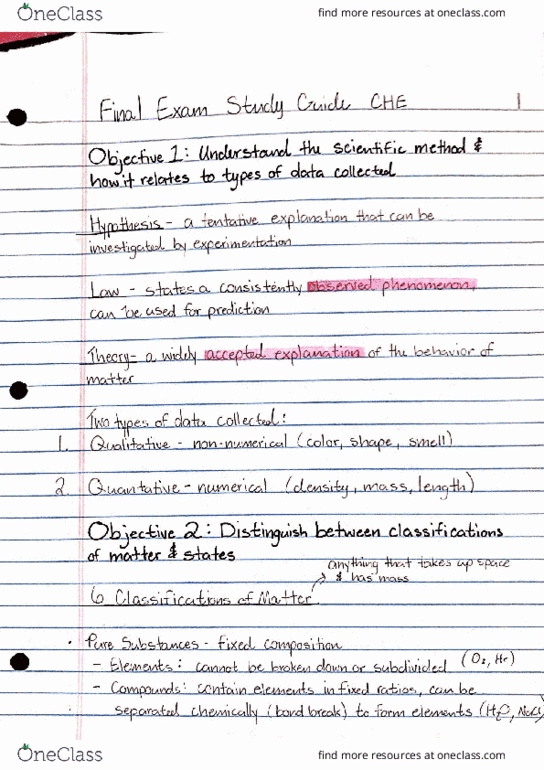 OneClass find more resources at oneclass.com
Final Exam Study Guide CHE 1
Objective 1: Understand the scientific method &
how it relates to types of data collected
Hypothesis - a tentative explanation that can be
investigated by experimentation
Law - states a consistently observed phenomenon,
can be used for prediction
Theory - a widely accepted explanation of the behavior of
matter
Two types of data collected:
1. Qualitative - non-numerical (color, shape, smell)
2. Quantative - numerical (density, mass, length)
Objective 2: Distinguish between classifications
of matter & states
anything that takes up space
& has mass
6 Classifications of Matter
· Pure Substances - fixed composition
- Elements: cannot be broken down or subdivided (O2, Hr)
- Compounds: contain elements in fixed ratios, can be
separated chemically (bond break) to form elements (H2O, NaCl)
OneClass find more resources at oneclass.com